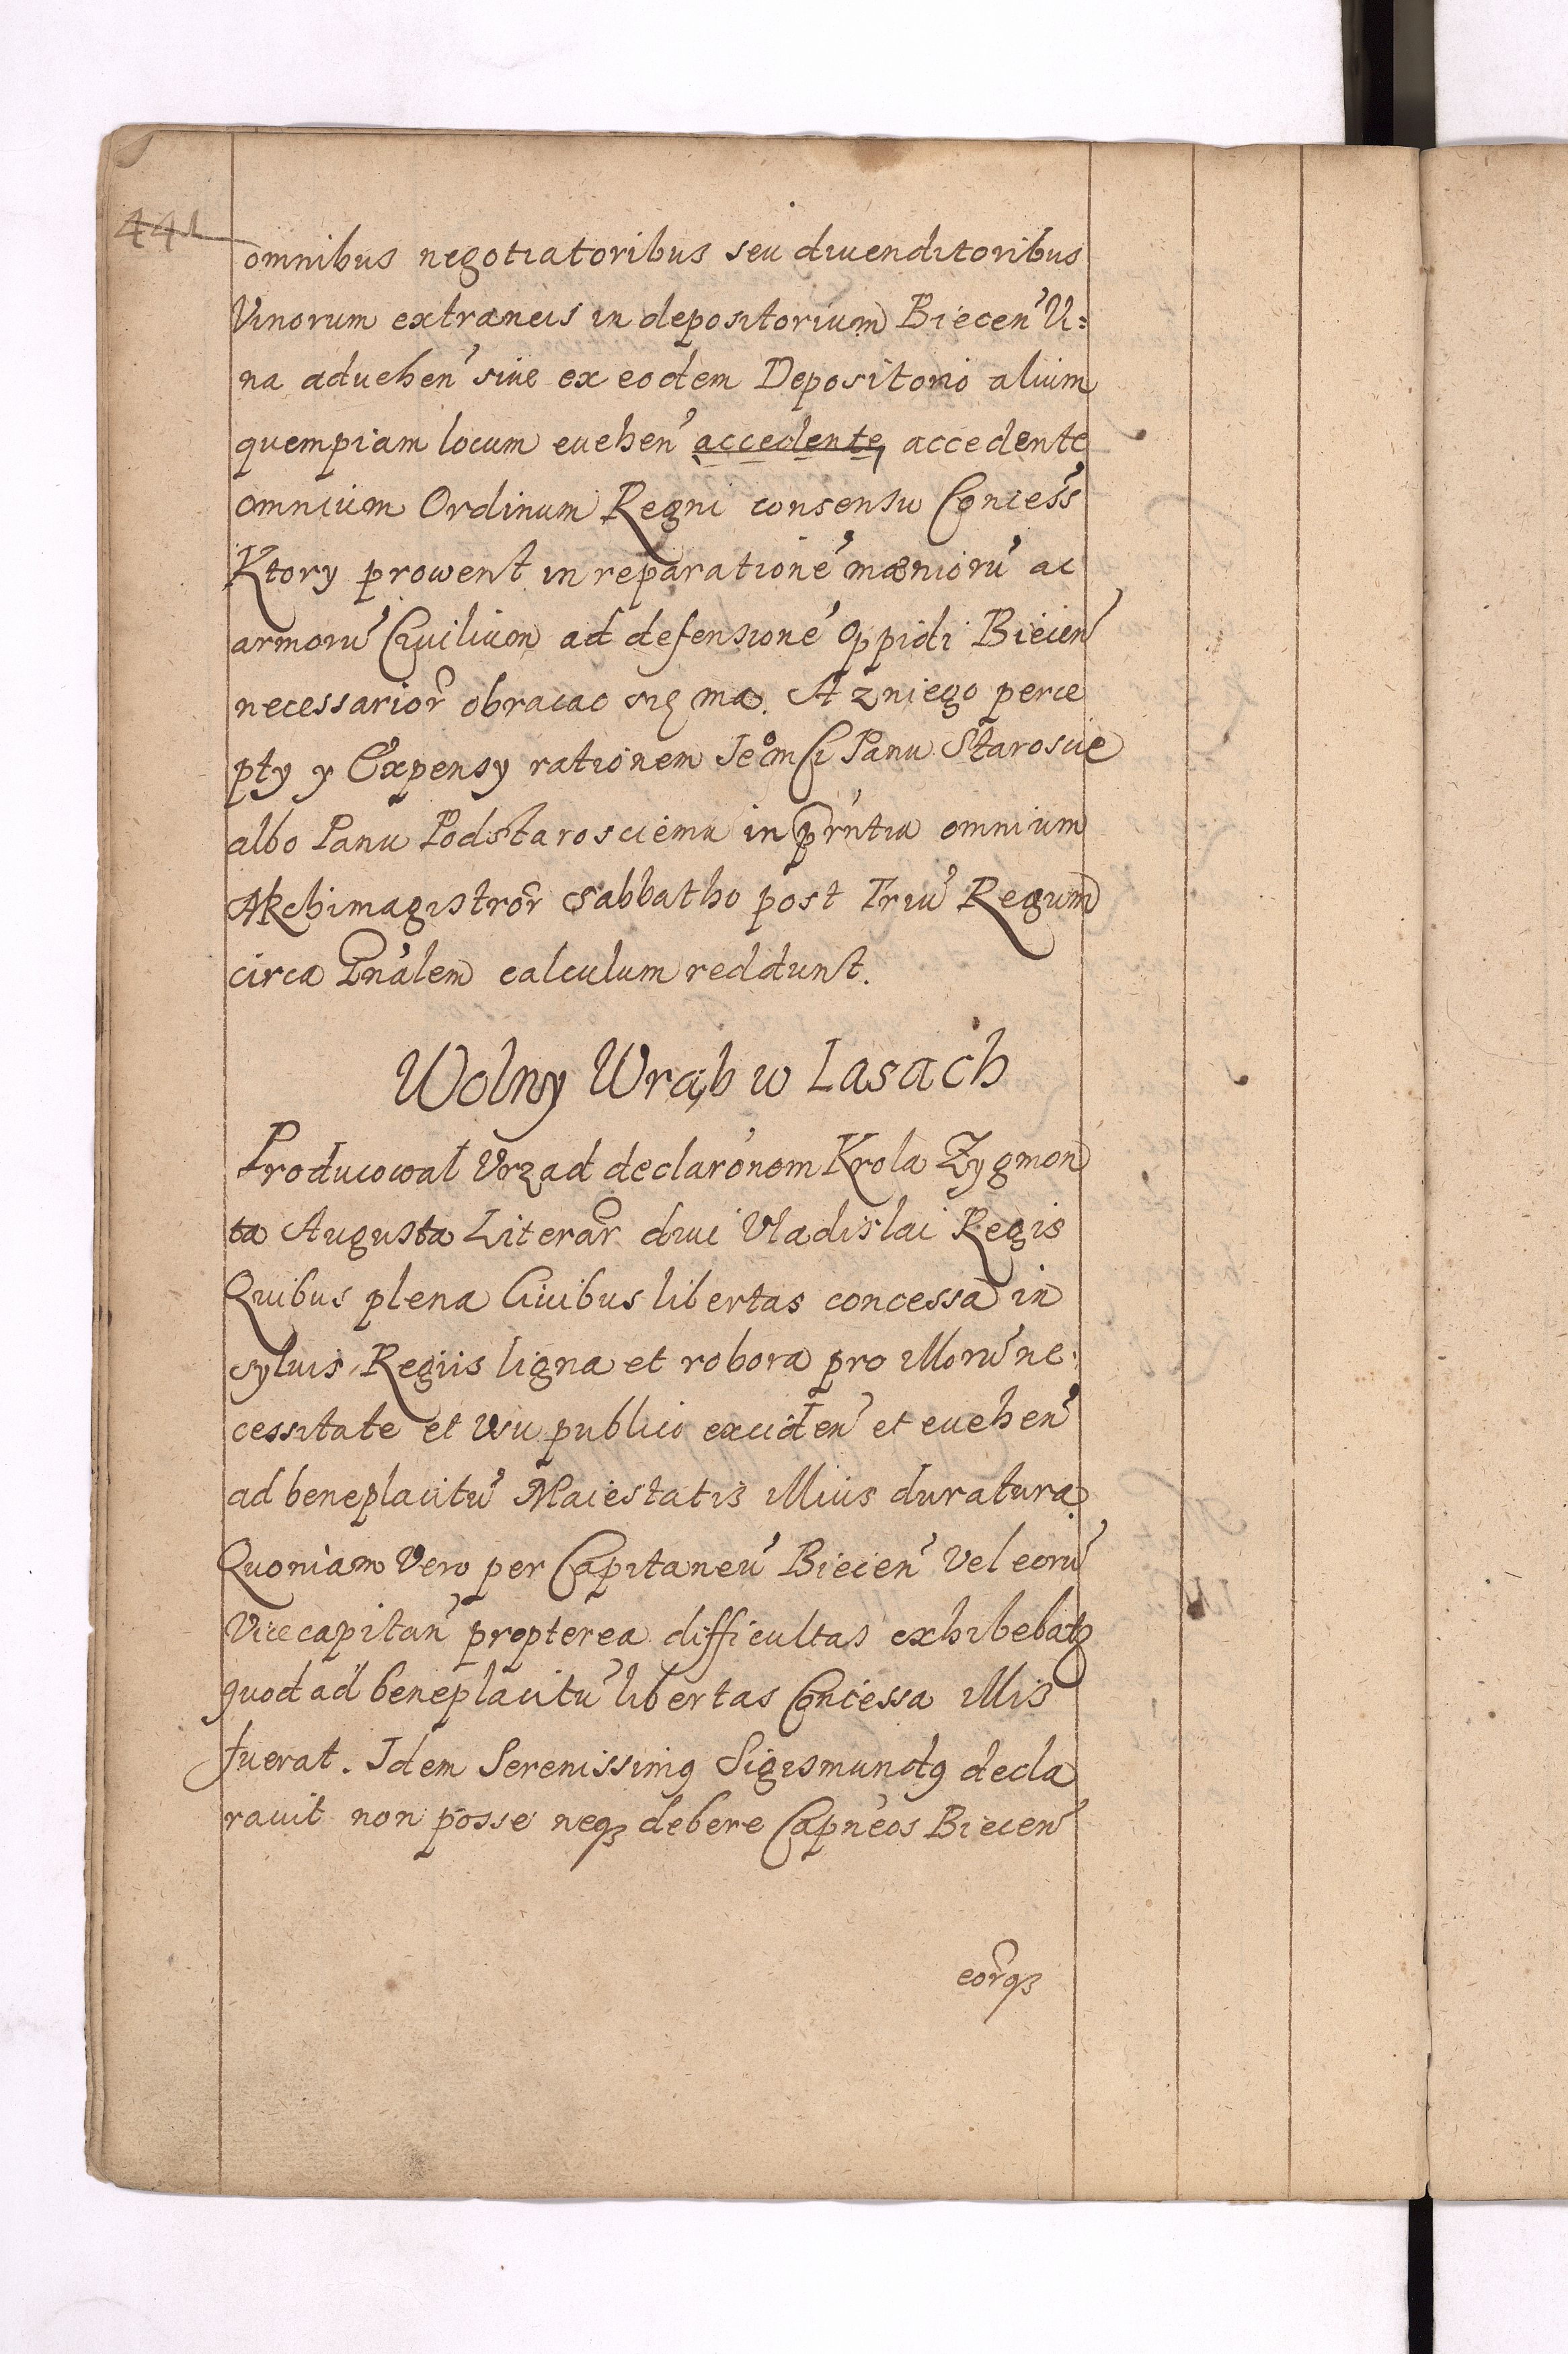 441
omnibus negotiatoribus seu diuenditoribus
Vinorum extraneis in depositorium Biecen̉ Vi:
na aduehen̉ siue ex eodem Depositorio alium
quempiam locum euehen̉ accedente accedente
omnium Ordinum Regni consensu Concess̉
Ktory prowent in reparatione̓ mænioru̓ ac
armoru̓ Ciuilium ad defensione̓ Oppidi Biecen̉
necessarior̉ obracac się ma. A zniego perce
pty y Expensy rationem Jeo̊mści Panu Staroscie
albo Panu Podstarosciemu in pr̃ntia omnium
ARchimagistror̉ Sabbatho post Triu̓ Regum
circa Gnãlem calculum reddunt.
Wolny Wrąb w Lasach
Producował Vrząd declarõnem Krola Zygmon
ta Augusta Literar̉ diui Vladislai Regis
Quibus plena Ciuibus libertas concessa in
syluis Regiis ligna et robora pro illoru̓ ne:
cessitate et vsu publico exciden̉ et euehen̉
ad beneplacitu̓ Maiestatis illius duratura
Quoniam Vero per Capitaneu̓ Biecen̉ Vel eoru̓
Vicecapitan̉ propterea difficultas exhibebatꝫ
quod ad beneplacitu̓ libertas Concessa illis
fuerat. Idem Serenissimꝯ Sigismundꝯ decla
rauit non posse neqꝫ debere Capnẽos Biecen̉
eor̉qꝫ